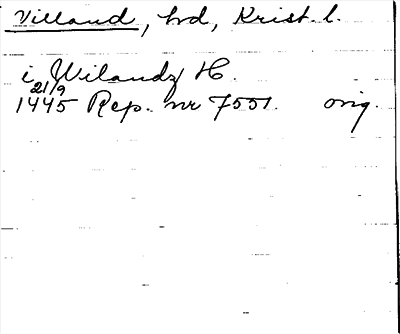 Villand, hd, Krist. l.
i Wilandz H.
21/9
1445 Rep. nr 7551. orig.